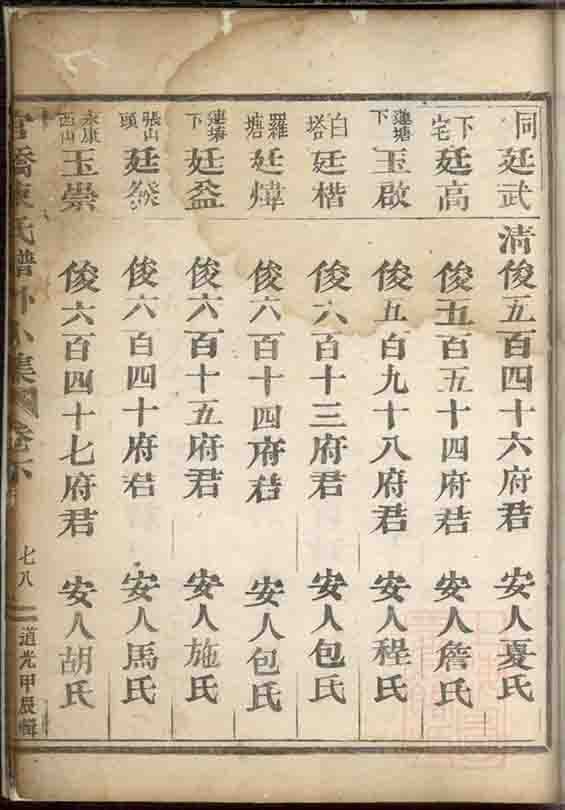 同 廷武 清 俊五百四十六府君 安人夏氏
下宅 廷高 俊五百五十四府君 安人詹氏
蓮塘下 玉啟 俊五百九十八府君 安人程氏
白塔 廷楷 俊六百十三府君 安人包氏
羅塘 廷煒 俊六百十四府君 安人包氏
蓮塘下 廷盈 俊六百十五府君 安人施氏
張山頭 廷 俊六百四十府君 安人馬氏
永康西山 玉崇 俊六百四十七府君 安人胡氏
橋陳氏譜外小集 卷 七八 道光甲辰輯